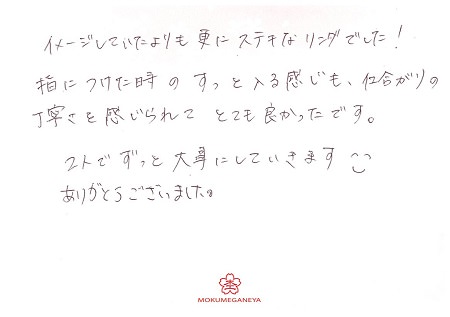 イメージしていたよりも更にステキなリングでした！
指につけた時のすっと入る感じも、仕合がりの
丁寧さを感じられてとても良かったです。
2人でずっと大事にしていきます
ありがとうございました。
MOKUMEGANEYA